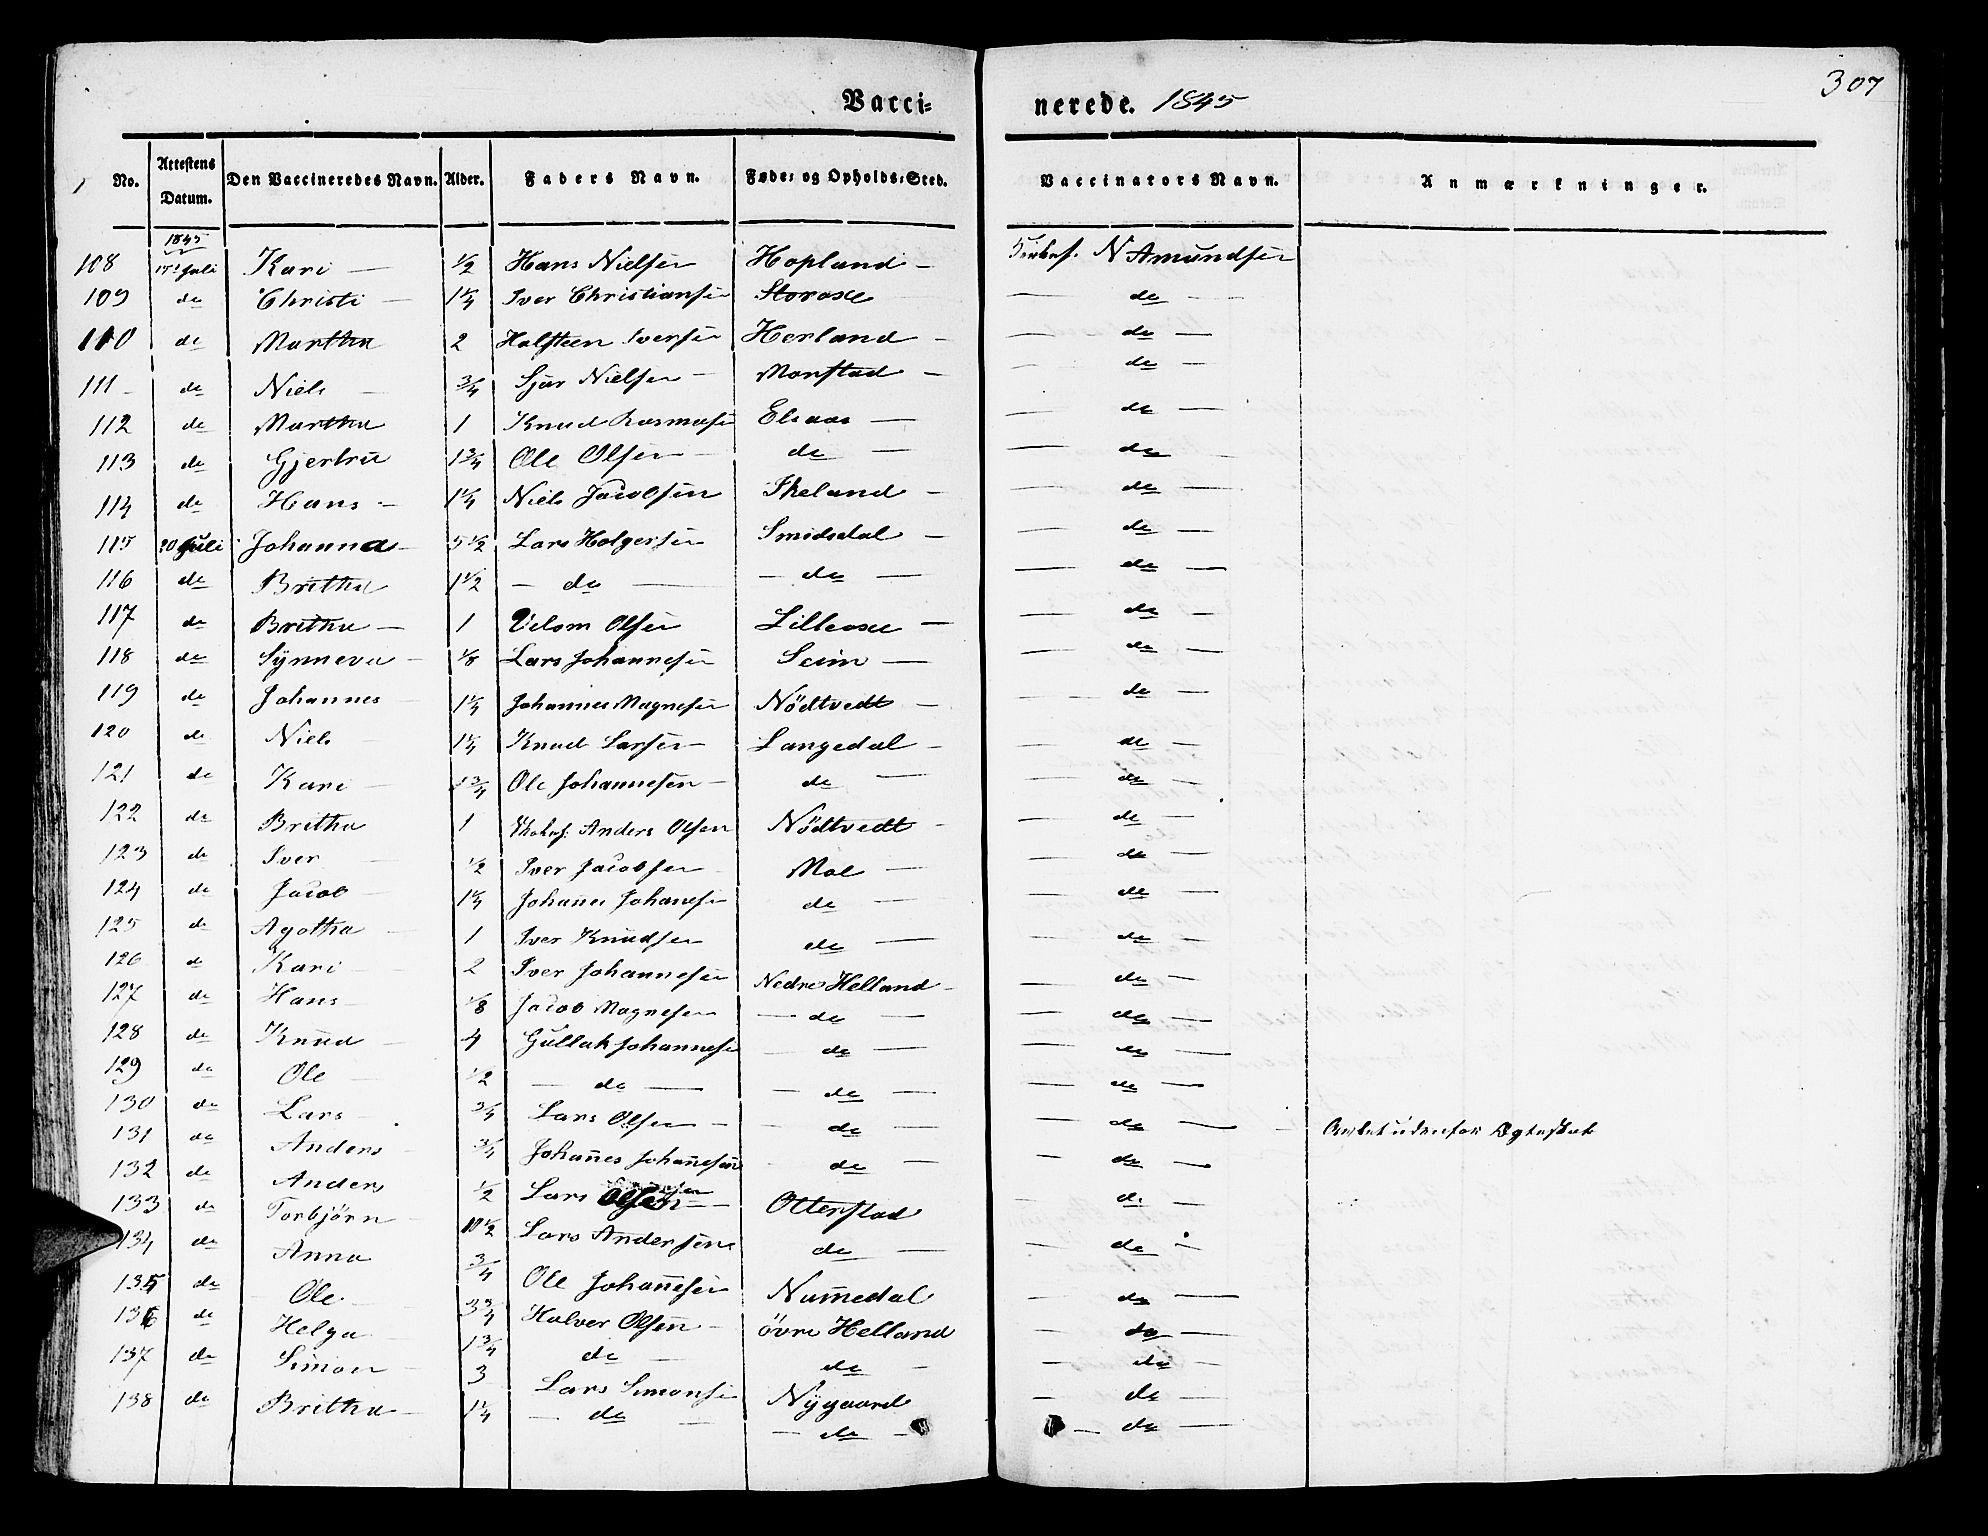 307
Vacci= nerede. 1845
No. Attestens Datum. Den Vaccineredes Navn. Alder. Faders Navn. Føde= og Opholds=Sted. Vaccinators Navn. Anmærkninger.
1845
108 17de Juli Kari — 1/2 Hans Nielsen Hopland — N Amundsen
109 do Christi — 1 1/4 Iver Christiansen Storoxe — do —
110 do Martha 2 Halsteen Iversen Herland — — do —
111 — do Niels — 3/4 Sjur Nielsen — Monstad — — do —
112 do Martha 1 Knud Rasmusen Elsaas — — do —
113 do Gjertru 1 3/4 Ole Olsen — do — — do —
114 do Hans — 1 1/4 Niels Jacobsen Skeland — — do —
115 20 Juli Johanna — 5 1/2 Lars Holgersen Smidsdal — — do —
116 do Britha 1 1/2 — do — — do — — do —
117 do Britha — 1 Velom Olsen Lilleoxe — — do —
118 do Synneva — 1/8 Lars Johannesen Seim — — do —
119 do Johannes — 1 1/4 Johannes Magnesen Nödtvedt — — do —
120 do Niels 1 1/4 Knud Larsen — Langedal — — do —
121 do Kari — 1 3/4 Ole Johannesen — do — — do —
122 do Britha 1 Anders Olsen Nödtvedt — — do —
123 do Iver — 1/2 Iver Jacobsen — Moe — — do —
124 do Jacob — 1 1/4 Johanes Johanesen do — — do —
125 do Agatha — 1 Iver Knudsen do — — do —
126 do Kari — 2 Iver Johannesen Nedre Helland — — do —
127 do Hans — 1/8 Jacob Magnesen — do — — do —
128 do Knud — 4 Gullak Johannesen — do — — do —
129 do Ole — 1/2 — do — — do — — do —
130 do Lars — 3/4 Lars Olsen — — do — — do — udenfor Ægteskab
131 do Anders — 3/4 Johanes Johanesen — do — — do —
132 do Anders 1/2 Lars Otterstad — do —
133 do Torbjörn — 10 1/2 Lars Andersen do — — do —
134 do Anna 3/4 Ole Johanesen Numedal — do —
135 do Ole — 3 3/4 Halver Olsen — övre Helland — do —
136 do Helga — 1 3/4 do — do — — do —
137 do Simon — 3 Lars Simonsen Nygaard — do —
138 do Britha — 1 1/4 — do — — do — — do —